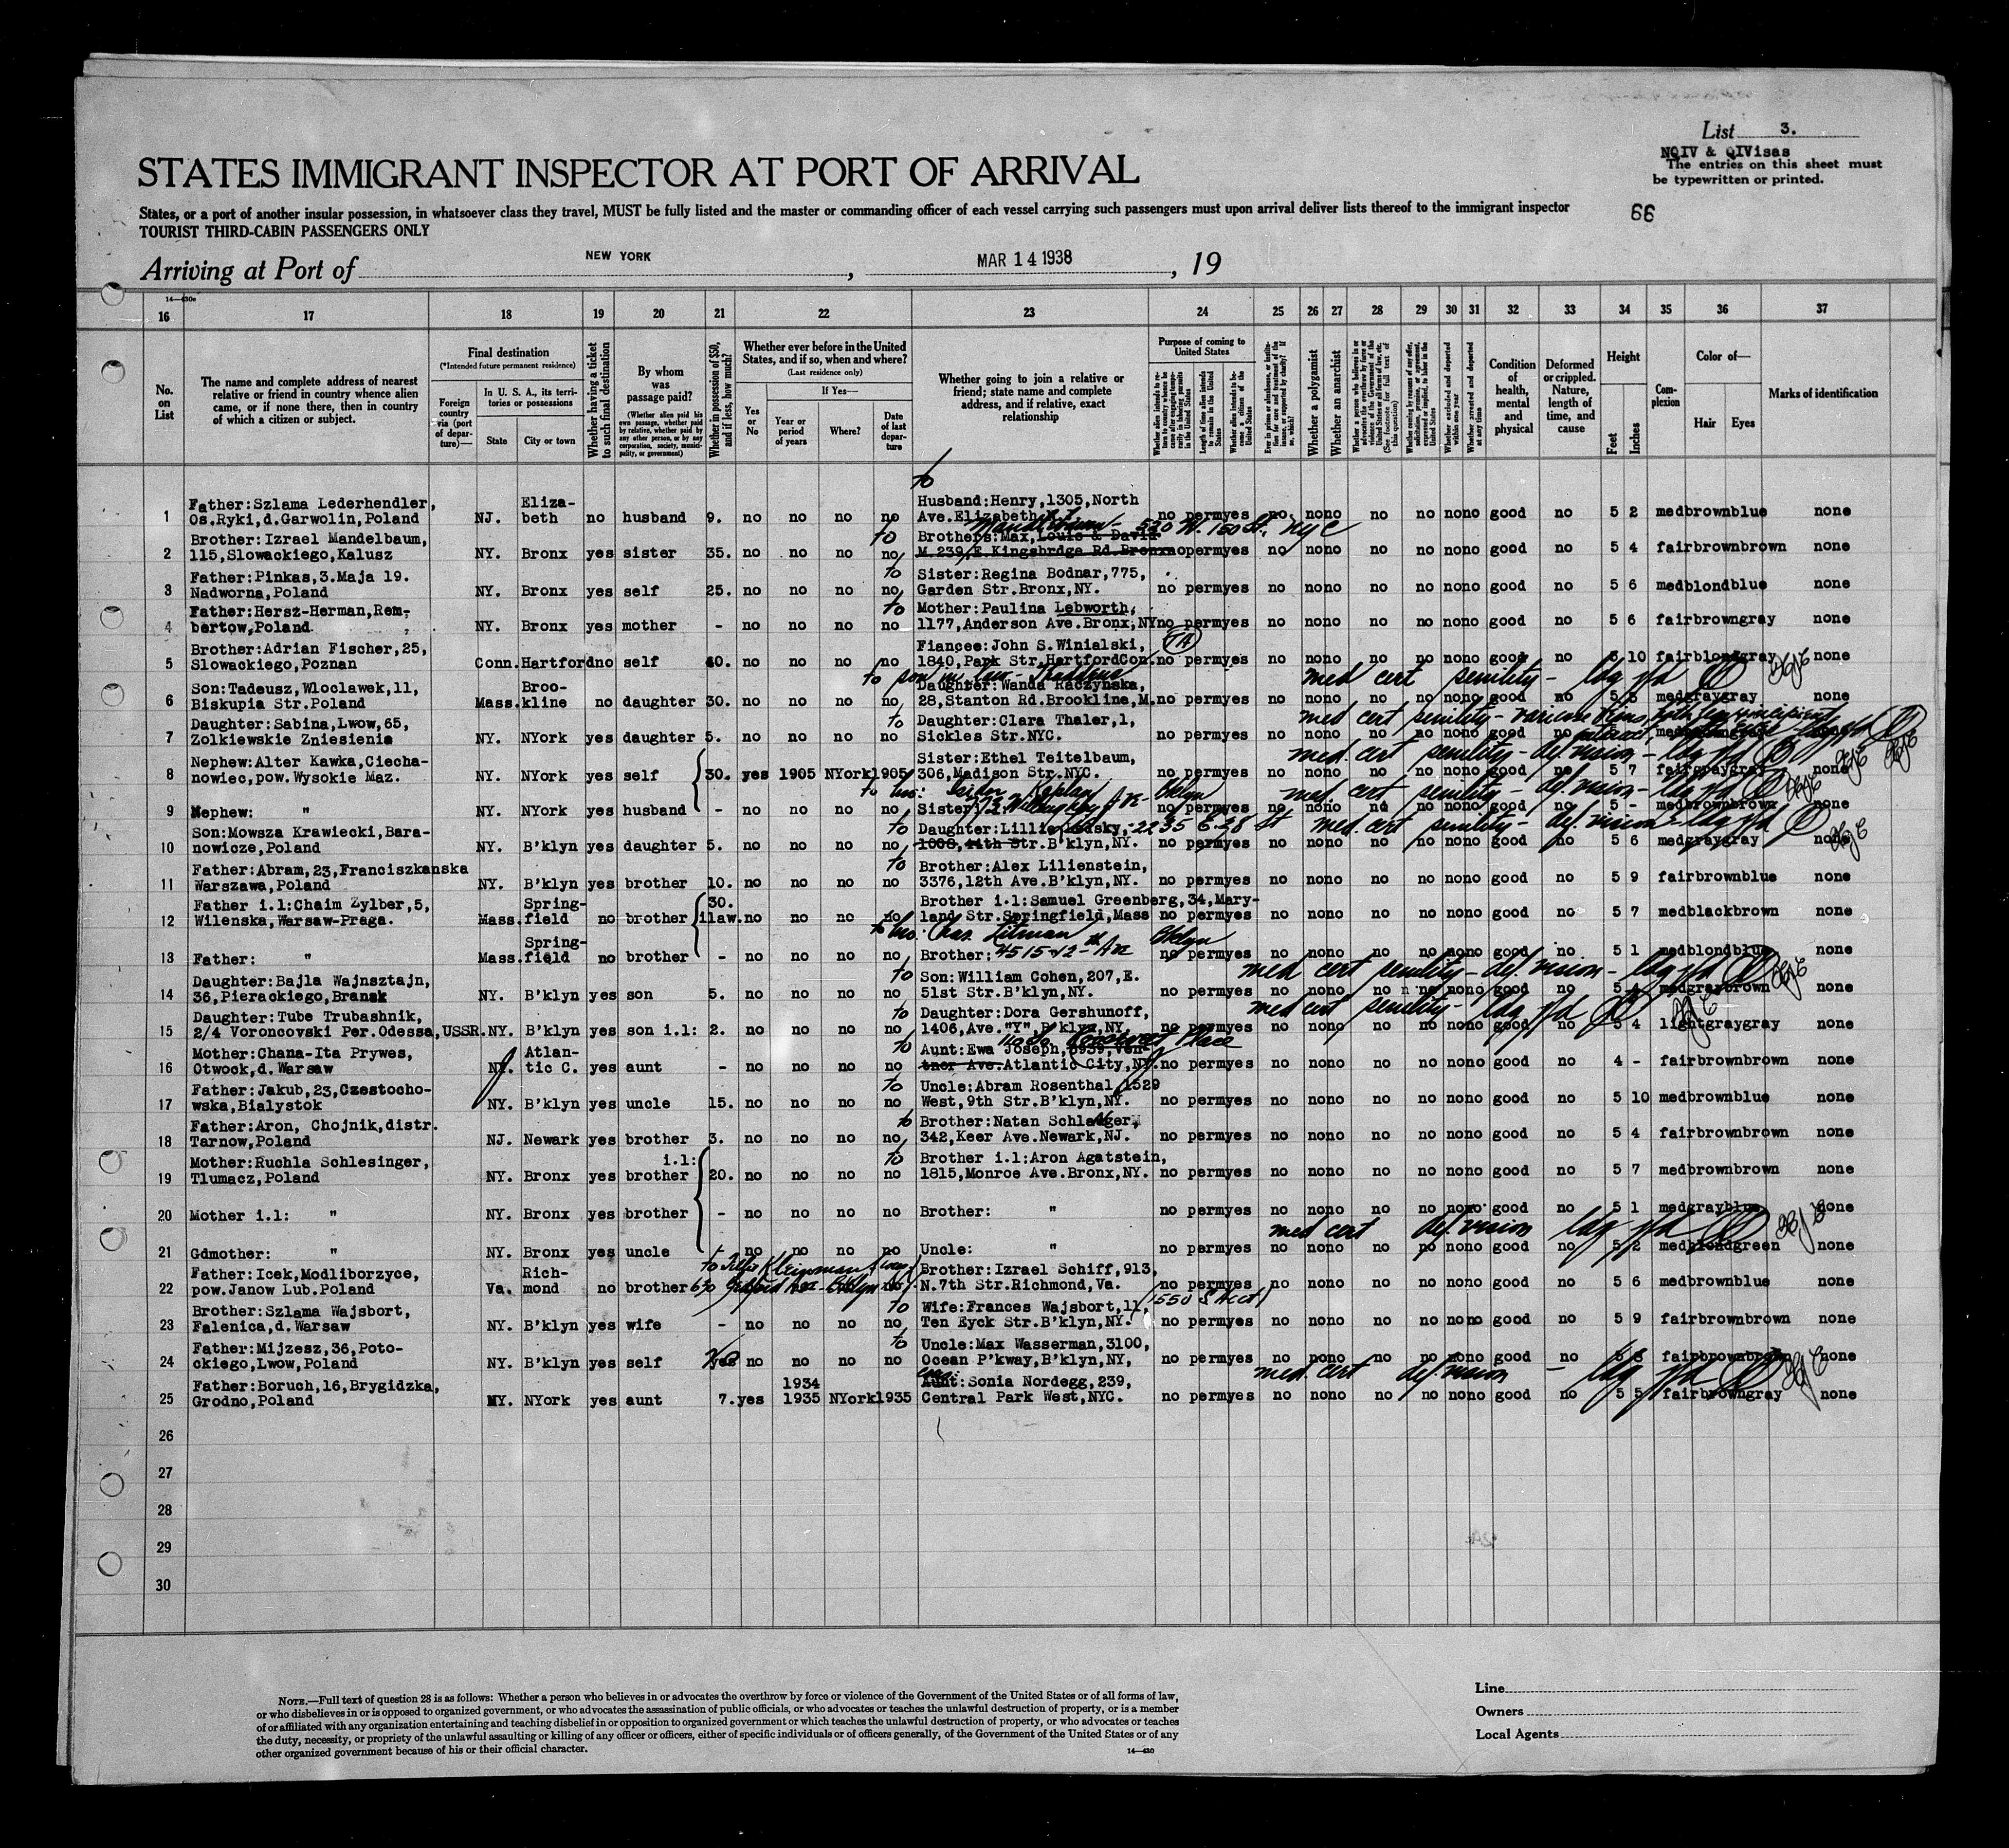 List 3.
NQIV & QIVisas
The entries on this sheet must
be typewritten or printed.
STATES IMMIGRANT INSPECTOR AT PORT OF ARRIVAL
States, or a port of another insular possession, in whatsoever class they travel, MUST be fully listed and the master or commanding officer of each vessel carrying such passengers must upon arrival deliver lists thereof to the immigrant inspector
TOURIST THIRD-CABIN PASSENGERS ONLY
66
Arriving at Port of NEW YORK, MAR 14 1938, 19
16 17 18 19 20 21 22 23 24 25 26 27 28 29 30 31 32 33 34 35 36 37
No. on List
The name and complete address of nearest relative or friend in country whence alien came, or if none there, then in country of which a citizen or subject.
Final destination
(*Intended future permanent residence)
Foreign country via (port of departure)—
In U. S. A., its territories or possessions
State City or town
Whether having a ticket to such final destination
By whom was passage paid?
(Whether alien paid his own passage, whether paid by relative, whether paid by any other person, or by any corporation, society, municipality, or government)
Whether in possession of $50, and if less, how much?
Whether ever before in the United States, and if so, when and where?
(Last residence only)
Yes or No
If Yes—
Year or period of years
Where?
Date of last departure
Whether going to join a relative or friend; state name and complete address, and if relative, exact relationship
Purpose of coming to United States
Whether a polygamist
Whether an anarchist
Condition of health, mental and physical
Deformed or crippled. Nature, length of time, and cause
Height
Feet Inches
Complexion
Color of—
Hair Eyes
Marks of identification
1 Father:Szlama Lederhendler, Os.Ryki,d.Garwolin,Poland NJ. Eliza-beth no husband 9. no no no no to Husband:Henry,1305,North Ave.Elizabeth no permyes no nono no no nono good no 5 2 medbrownblue none
2 Brother:Izrael Mandelbaum, 115,Slowackiego,Kalusz NY. Bronx yes sister 35. no no no no to Brothers:Max,Louis & David M.239,E.Kingsbrdge Rd.Bronx Mandelbaum - 520 W. 150 St. NYC nopermyes no nono no no nono good no 5 4 fairbrownbrown none
3 Father:Pinkas,3.Maja 19. Nadworna,Poland NY. Bronx yes self 25. no no no no to Sister:Regina Bodnar,775, Garden Str.Bronx,NY. no permyes no nono no no nono good no 5 6 medblondblue none
4 Father:Hersz-Herman,Rem-bertow,Poland NY. Bronx yes mother - no no no no to Mother:Paulina Lebworth, 1177,Anderson Ave.Bronx,NY no permyes no nono no no nono good no 5 6 fairbrowngray none
5 Brother:Adrian Fischer,25, Slowackiego,Poznan Conn. Hartford no self 40. no no no no Fiancee:John S.Winialski, 1840,Park Str.HartfordCon. no permyes no nono no no nono good no 5 10 fairblondgray none
6 Son:Tadeusz,Wloclawek,11, Biskupia Str.Poland Mass. Broo-kline no daughter 30. no no no no to son in law - Daughter:Wanda Raczynska, 28,Stanton Rd.Brookline,M. no permyes no nono no no nono good no 5 5 medgraygray none
med cert senility -
7 Daughter:Sabina,Lwow,65, Zolkiewskie Zniesienie NY. NYork yes daughter 5. no no no no to Daughter:Clara Thaler,1, Sickles Str.NYC. no permyes no nono no no nono good no
med cert senility - varicose veins, both legs
8 Nephew:Alter Kawka,Ciecha-nowiec,pow.Wysokie Maz. NY. NYork yes self 30. yes 1905 NYork1905 Sister:Ethel Teitelbaum, 306,Madison Str.NYC. no permyes no nono no no nono good no 5 7 fairgraygray none
med. cert senility - def. vision -
9 Nephew: " NY. NYork yes husband - no no no no to bro: Isidor Kaplan Bklyn Sister no permyes no nono no no nono good no 5 - medbrownbrown none
med cert senility - def. vision -
10 Son:Mowsza Krawiecki,Bara-nowicze,Poland NY. B'klyn yes daughter 5. no no no no to Daughter:Lillie 1008,44th Str.B'klyn,NY. 2235 E. 28 St no permyes no nono no no nono good no 5 6 medgraygray none
med. cert senility - def. vision -
11 Father:Abram,23,Franciszkanska Warszawa,Poland NY. B'klyn yes brother 10. no no no no to Brother:Alex Lilienstein, 3376,12th Ave.B'klyn,NY. no permyes no nono no no nono good no 5 9 fairbrownblue none
12 Father i.l:Chaim Zylber,5, Wilenska,Warsaw-Praga. Mass. Spring-field no brother ilaw. 30. no no no no Brother i.l:Samuel Greenberg,34,Mary-land Str.Springfield,Mass no permyes no nono no no nono good no 5 7 medblackbrown none
13 Father: " Mass. Spring-field no brother - no no no no to bro: Chas. Litman Bklyn Brother: 4515-12th Ave no permyes no nono no no nono good no 5 1 medblondblue none
14 Daughter:Bajla Wajnsztajn, 36,Pierackiego,Bransk NY. B'klyn yes son 5. no no no no to Son:William Cohen,207,E. 51st Str.B'klyn,NY. no permyes no nono no no nono good no 5 4 medgraybrown none
med cert senility - def. vision -
15 Daughter:Tube Trubashnik, 2/4 Voroncovski Per.Odessa,USSR. NY. B'klyn yes son i.l: 2. no no no no to Daughter:Dora Gershunoff, 1406,Ave."Y",B'klyn,NY. no permyes no nono no no nono good no 5 4 lightgraygray none
med cert senility -
16 Mother:Chana-Ita Prywes, Otwock,d.Warsaw Atlan-tic C. yes aunt - no no no no to Aunt:Ewa Joseph,5939,Ven-tnor Ave.Atlantic City,NY. Place no permyes no nono no no nono good no 4 - fairbrownbrown none
17 Father:Jakub,23,Czestocho-wska,Bialystok NY. B'klyn yes uncle 15. no no no no to Uncle:Abram Rosenthal,1529 West,9th Str.B'klyn,NY. no permyes no nono no no nono good no 5 10 medbrownblue none
18 Father:Aron, Chojnik,distr. Tarnow,Poland NJ. Newark yes brother 3. no no no no to Brother:Natan Schlanger, 342,Keer Ave.Newark,NJ. no permyes no nono no no nono good no 5 4 fairbrownbrown none
19 Mother:Ruchla Schlesinger, Tlumacz,Poland NY. Bronx yes i.l: brother 20. no no no no to Brother i.l:Aron Agatstein, 1815,Monroe Ave.Bronx,NY. no permyes no nono no no nono good no 5 7 medbrownbrown none
20 Mother i.l: " NY. Bronx yes brother - no no no no Brother: " no permyes no nono no no nono good no 5 1 medgrayblue none
21 Gdmother: " NY. Bronx yes uncle - no no no no Uncle: " no permyes no nono no no nono good no 5 2 medblondgreen none
med cert def. vision
22 Father:Icek,Modliborzyce, pow.Janow Lub.Poland Va. Rich-mond no brother no Brother:Izrael Schiff,913, N.7th Str.Richmond,Va. no permyes no nono no no nono good no 5 6 medbrownblue none
23 Brother:Szlama Wajsbort, Falenica,d.Warsaw NY. B'klyn yes wife - no no no no to Wife:Frances Wajsbort,11, Ten Eyck Str.B'klyn,NY. no permyes no nono no no nono good no 5 9 fairbrownbrown none
24 Father:Mijzesz,36,Poto-ckiego,Lwow,Poland NY. B'klyn yes self yes no no no no to Uncle:Max Wasserman,3100, Ocean P'kway,B'klyn,NY, no permyes no nono no no nono good no fairbrownbrown none
25 Father:Boruch,16,Brygidzka, Grodno,Poland NY. NYork yes aunt 7. yes 1934 1935 NYork1935 Aunt:Sonia Nordegg,239, Central Park West,NYC. no permyes no nono no no nono good no 5 5 fairbrowngray none
med. cert def. vision -
26
27
28
29
30
NOTE.—Full text of question 28 is as follows: Whether a person who believes in or advocates the overthrow by force or violence of the Government of the United States or of all forms of law,
or who disbelieves in or is opposed to organized government, or who advocates the assassination of public officials, or who advocates or teaches the unlawful destruction of property, or is a member
of or affiliated with any organization entertaining and teaching disbelief in or opposition to organized government or which teaches the unlawful destruction of property, or who advocates or teaches
the duty, necessity, or propriety of the unlawful assaulting or killing of any officer or officers, either of specific individuals or of officers generally, of the Government of the United States or of any
other organized government because of his or their official character.
14—430
Line
Owners
Local Agents